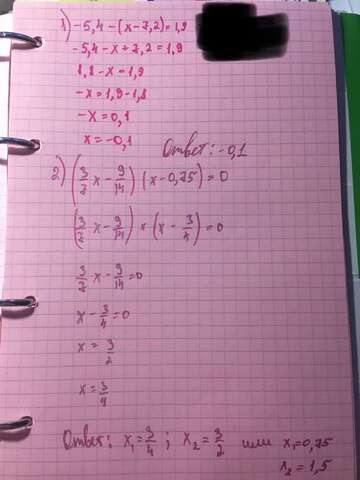 1) -5,4-(x-7,2)=1,9
-5,4-x+7,2=1,9
1,8-x=1,9
-x=1,9-1,8
-x=0,1
x=-0,1
Ответ: -0,1
2) (3/7 x - 9/14) (x-0,75)=0
(3/7 x - 9/14) × (x - 3/4)=0
3/7 x - 9/14=0
x - 3/4=0
x = 3/2
x = 3/4
Ответ: x₁=3/4; x₂=3/2 или x₁=0,75
x₂=1,5